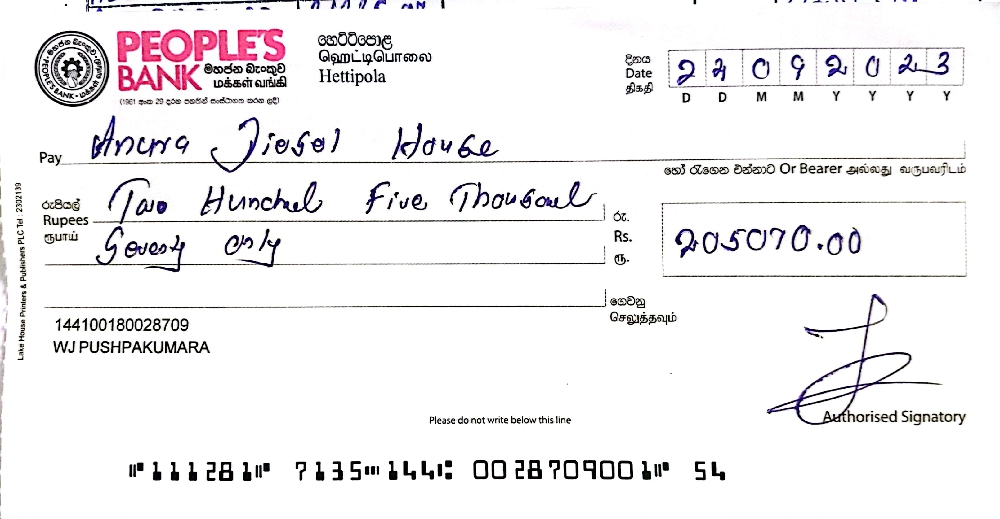 PEOPLE'S
BANK මහජන බැංකුව
மக்கள் வங்கி
(1961 අංක 29 දරන පනතින් සංස්ථාගත කරන ලදී)
හෙට්ටිපොළ
ஹெட்டிபொலை
Hettipola
දිනය
Date
திகதி
2 2 0 9 2 0 2 3
D D M M Y Y Y Y
Pay Anura Diesel House
හෝ රැගෙන එන්නාට Or Bearer அல்லது வருபவரிடம்
රුපියල්
Rupees
ரூபாய்
Two Hundred Five Thousand
Seventy only
රු.
Rs.
ரூ.
205070.00
ගෙවනු
செலுத்தவும்
144100180028709
WJ PUSHPAKUMARA
Authorised Signatory
Please do not write below this line
⑈111281⑈ 7135⑉144⑆ 0028709001⑈ 54
Lake House Printers & Publishers PLC Tel : 2302139